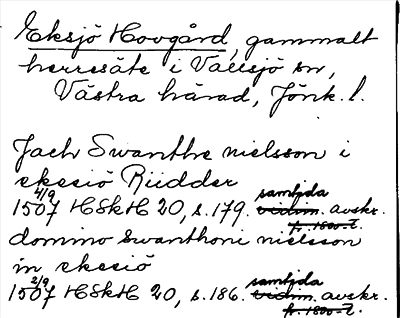 Eksjö Hovgård, gammalt
herresäte i Vallsjö sn,
Västra härad, Jönk. l.
Jach Swanthe nielsson i
ekesiö Riidder
1507 4/9 HSkH 20, s. 179. samtida avskr.
domino swanthoni nielsson
in ekesiö
1507 2/9 HSkH 20, s. 186. samtida avskr.